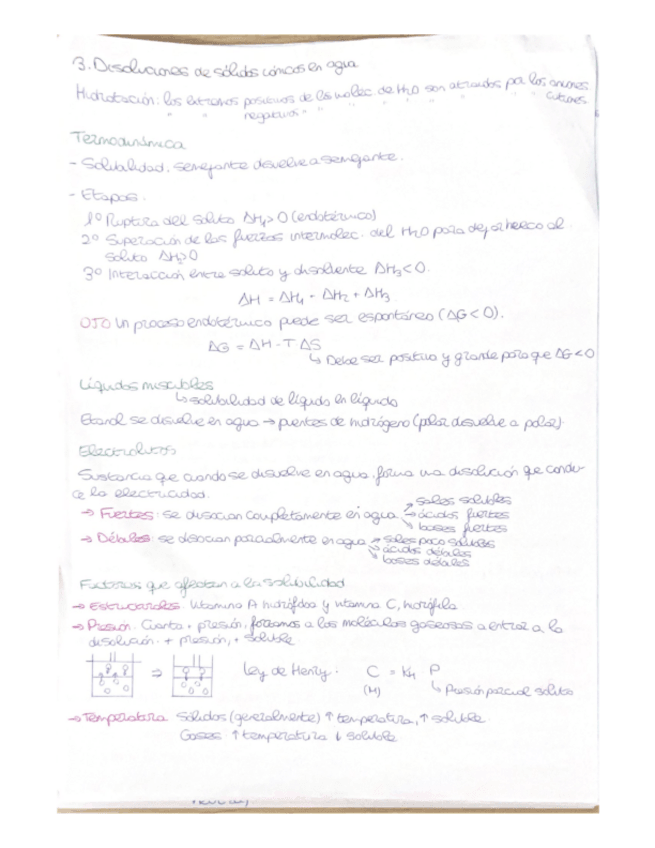 3. Disoluciones de sólidos iónicos en agua
Hidratación: los extremos positivos de las molec. de H₂O son atraidos por los aniones
" " negativos " " " " " " " " cationes
Termodinámica
- Solubilidad. semejante disuelve a semejante.
- Etapas.
1º Ruptura del soluto ΔH₁ > 0 (endotérmico)
2º Superación de las fuerzas intermolec. del H₂O para dejar hueco al
soluto ΔH₂ > 0
3º Interacción entre soluto y disolvente ΔH₃ < 0.
ΔH = ΔH₁ + ΔH₂ + ΔH₃
OJO Un proceso endotérmico puede ser espontáneo (ΔG < 0).
ΔG = ΔH - T ΔS
↳ Debe ser positivo y grande para que ΔG < 0
Líquidos miscibles
↳ solubilidad de líquido en líquido
Etanol se disuelve en agua → puentes de hidrógeno (polar disuelve a polar).
Electrolitos
Sustancia que cuando se disuelve en agua, forma una disolución que condu-
ce la electricidad.
→ Fuertes: se disocian completamente en agua → sales solubles
→ ácidos fuertes
→ bases fuertes
→ Débiles: se disocian parcialmente en agua → sales poco solubles
→ ácidos débiles
→ bases débiles
Factores que afectan a la solubilidad
→ Estructurales. Vitamina A hidrófoba y vitamina C, hidrófila.
→ Presión. Cuanta + presión, forzamos a las moléculas gaseosas a entrar a la
disolución. + presión, + soluble
⇒ Ley de Henry: C = K_H P
(M) ↳ Presión parcial soluto
→ Temperatura Sólidos (generalmente) ↑ temperatura, ↑ soluble
Gases: ↑ temperatura ↓ soluble